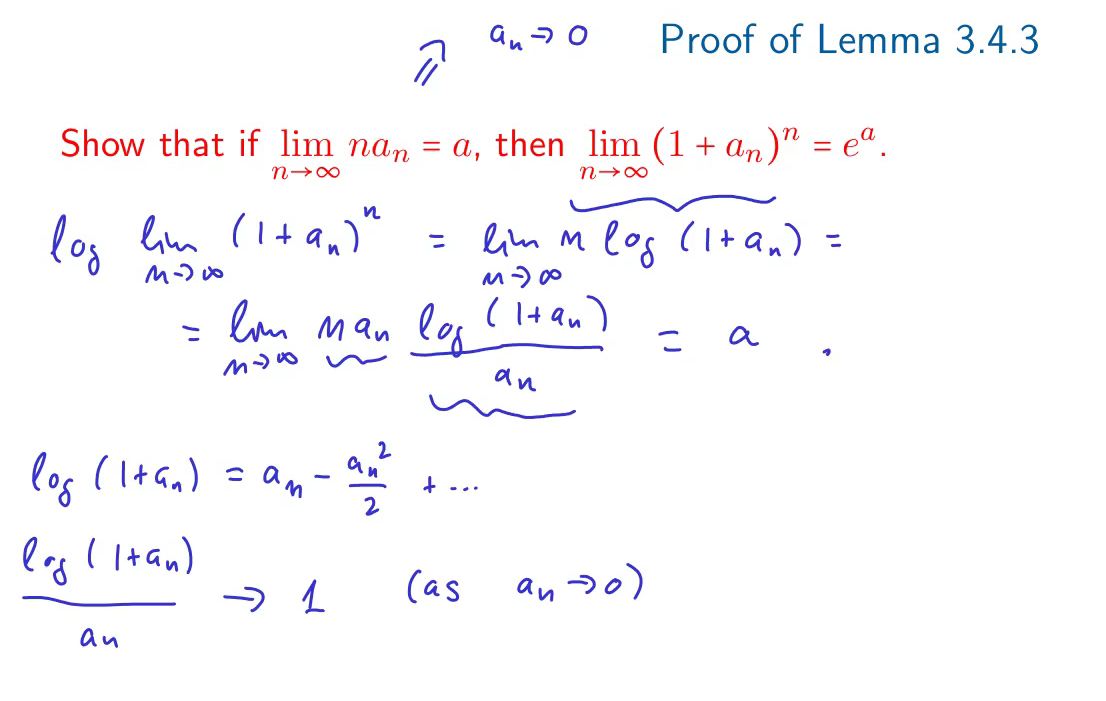 ⇒ aₙ → 0 Proof of Lemma 3.4.3
Show that if lim_{n→∞} naₙ = a, then lim_{n→∞} (1 + aₙ)ⁿ = eᵃ.
log lim_{n→∞} (1 + aₙ)ⁿ = lim_{n→∞} n log (1 + aₙ) =
= lim_{n→∞} n aₙ log (1 + aₙ) / aₙ = a .
log (1 + aₙ) = aₙ - aₙ²/2 + ...
log (1 + aₙ) / aₙ → 1 (as aₙ → 0)